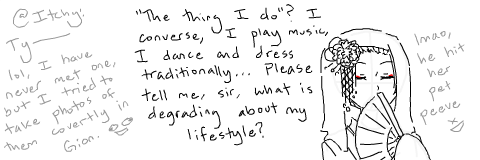 @ Itchy:
Ty
lol, I have
never met one,
but I tried to
take photos of
them covertly in
Gion.
"The thing I do"? I
converse, I play music,
I dance and dress
traditionally... Please
tell me, sir, what is
degrading about my
lifestyle?
lmao,
he hit
her
pet
peeve